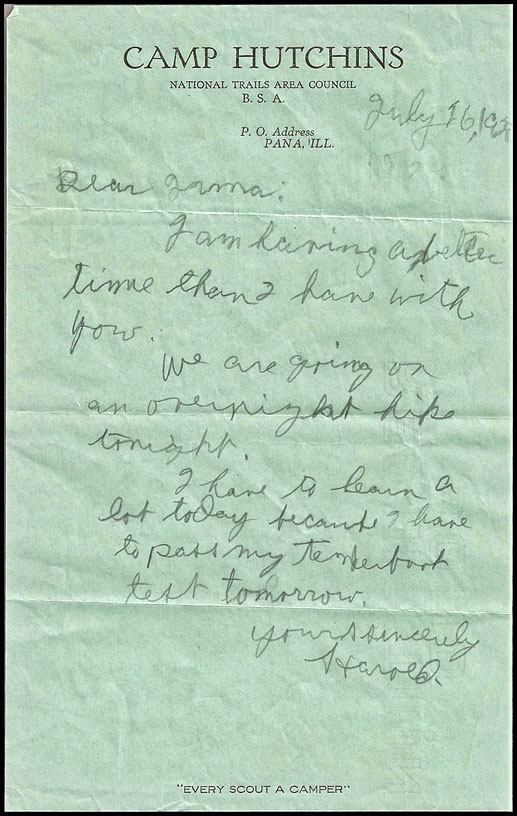 CAMP HUTCHINS
NATIONAL TRAILS AREA COUNCIL
B. S. A.
July 26, 192
P. O. Address
PANA, ILL.
Dear
I am having a better
time than I have with
you.
We are going on
an overnight hike
tonight.
I have to learn a
lot today because I have
to pass my Tenderfoot
test tomorrow.
Yours sincerely
Harold.
"EVERY SCOUT A CAMPER"